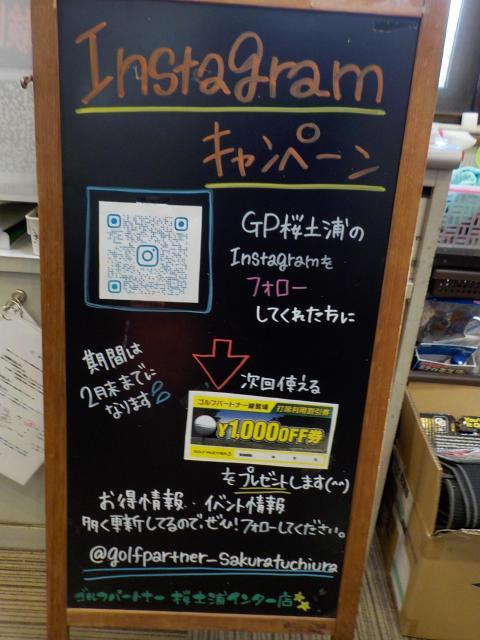 Instagram
キャンペーン
GP桜土浦の
Instagramを
フォロー
してくれた方に
期間は
2月末までに
なります
次回使える
ゴルフパートナー練習場 打席利用割引券
¥1,000OFF券
GOLF PARTNER
をプレゼントします(^^)
お得情報、イベント情報
多く更新してるので、ぜひ!フォローしてください。
@golfpartner_sakuratuchiura
ゴルフパートナー 桜土浦インター店